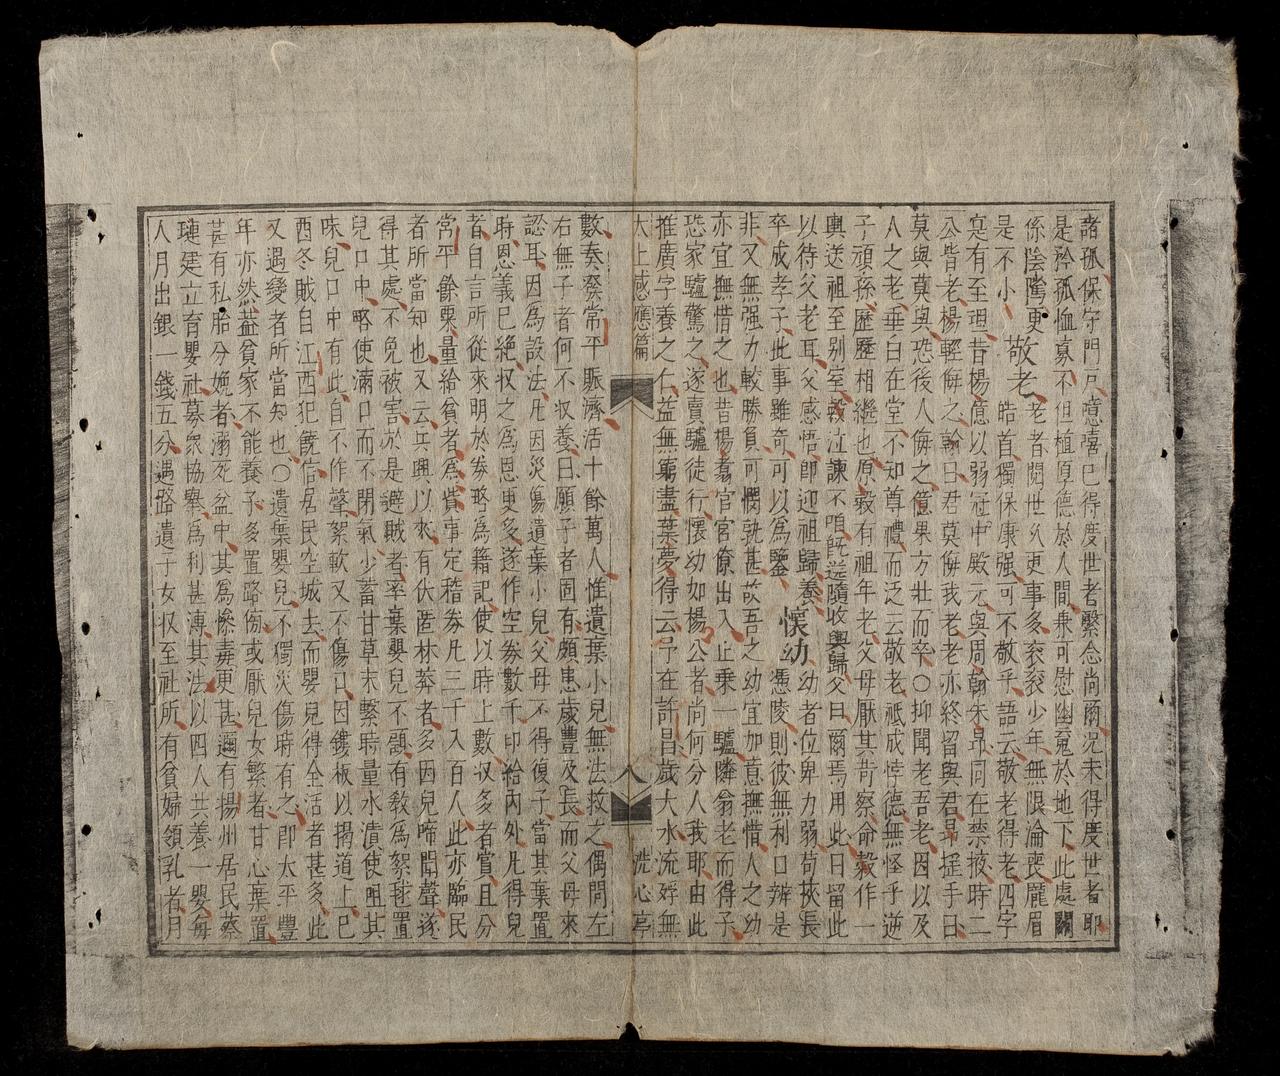 諸孤保守門戶噫嘻已得度世者繫念尚爾况未得度世者耶
是矜孤恤寡不但植厚德於人間兼可慰幽寃於地下此處關
係陰隲更
是不小敬老老者閱世久更事多衮衮少年無限淪喪龎眉
皓首獨保康强可不敬乎語云敬老得老四字
寔有至理昔楊億以弱冠中殿元與周翰朱昂同在禁掖時二
公皆老楊輕侮之翰曰君莫侮我老老亦終留與君昂摇手曰
莫與莫與恐後人侮之億果方壯而卒○抑聞老吾老因以及
人之老垂白在堂不知尊禮而泛云敬老祗成悖德無怪乎逆
子頑孫歷歷相繼也原穀有祖年老父母厭其苛察命穀作一
輿送祖至别室穀泣諫不咱旣送隨收輿歸父曰爾焉用此曰留此
以待父老耳父感悟即迎祖歸養
卒成孝子此事雖奇可以為鑒懷幼幼者位卑力弱苟挾長
憑陵則彼無利口辨是
非又無强力較勝負可憫孰甚故吾之幼宜加意撫惜人之幼
亦宜撫惜之也昔楊翥官宫僚出入止乗一驢隣翁老而得子
恐家驢驚之遂賣驢徒行懷幼如楊公者尚何分人我耶由此
推廣字養之仁益無窮盡葉夢得云予在許昌歲大水流殍無
太上感應篇 八 洗心亭
數奏發常平賑濟活十餘萬人惟遺棄小兒無法救之偶問左
右無子者何不収養曰願子者固有頗患歲豐及長而父母來
認耳因為設法凡因災傷遺棄小兒父母不得復子當其棄置
時恩義已絶収之為恩更多遂作空劵數千印給内外凡得兒
者自言所從來明於劵略為籍記使以時上數収多者賞且分
常平餘粟量給貧者為貲事定稽劵凡三千八百人此亦臨民
者所當知也又云兵興以來有伏匿林莽者多因兒啼聞聲遂
得其處不免被害於是避賊者率棄嬰兒不顧有敎為絮毬置
兒口中略使滿口而不閉氣少蓄甘草末繫時量水漬使咀其
味兒口中有此自不作聲絮軟又不傷口因鏤板以揭道上巳
酉冬賊自江西犯饒信居民空城去而嬰兒得全活者甚多此
又遇變者所當知也○遺棄嬰兒不獨災傷時有之即太平豐
年亦然葢貧家不能養子多置路傍或厭兒女繁者甘心棄置
甚有私胎分娩者溺死盆中其為慘毒更甚邇有揚州居民蔡
璉建立育嬰社募衆協舉為利甚溥其法以四人共養一嬰每
人月出銀一錢五分遇路遺子女収至社所有貧婦領乳者月